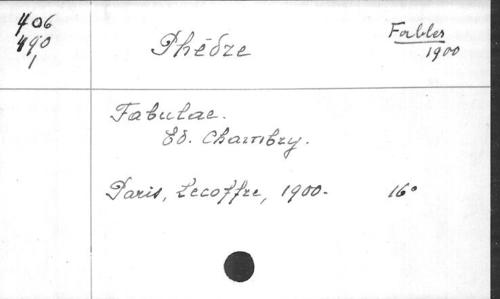 406
490
1
Phèdre
Fables
1900
Fabulae.
Ed. Chambry.
Paris, Lecoffre, 1900.
16°